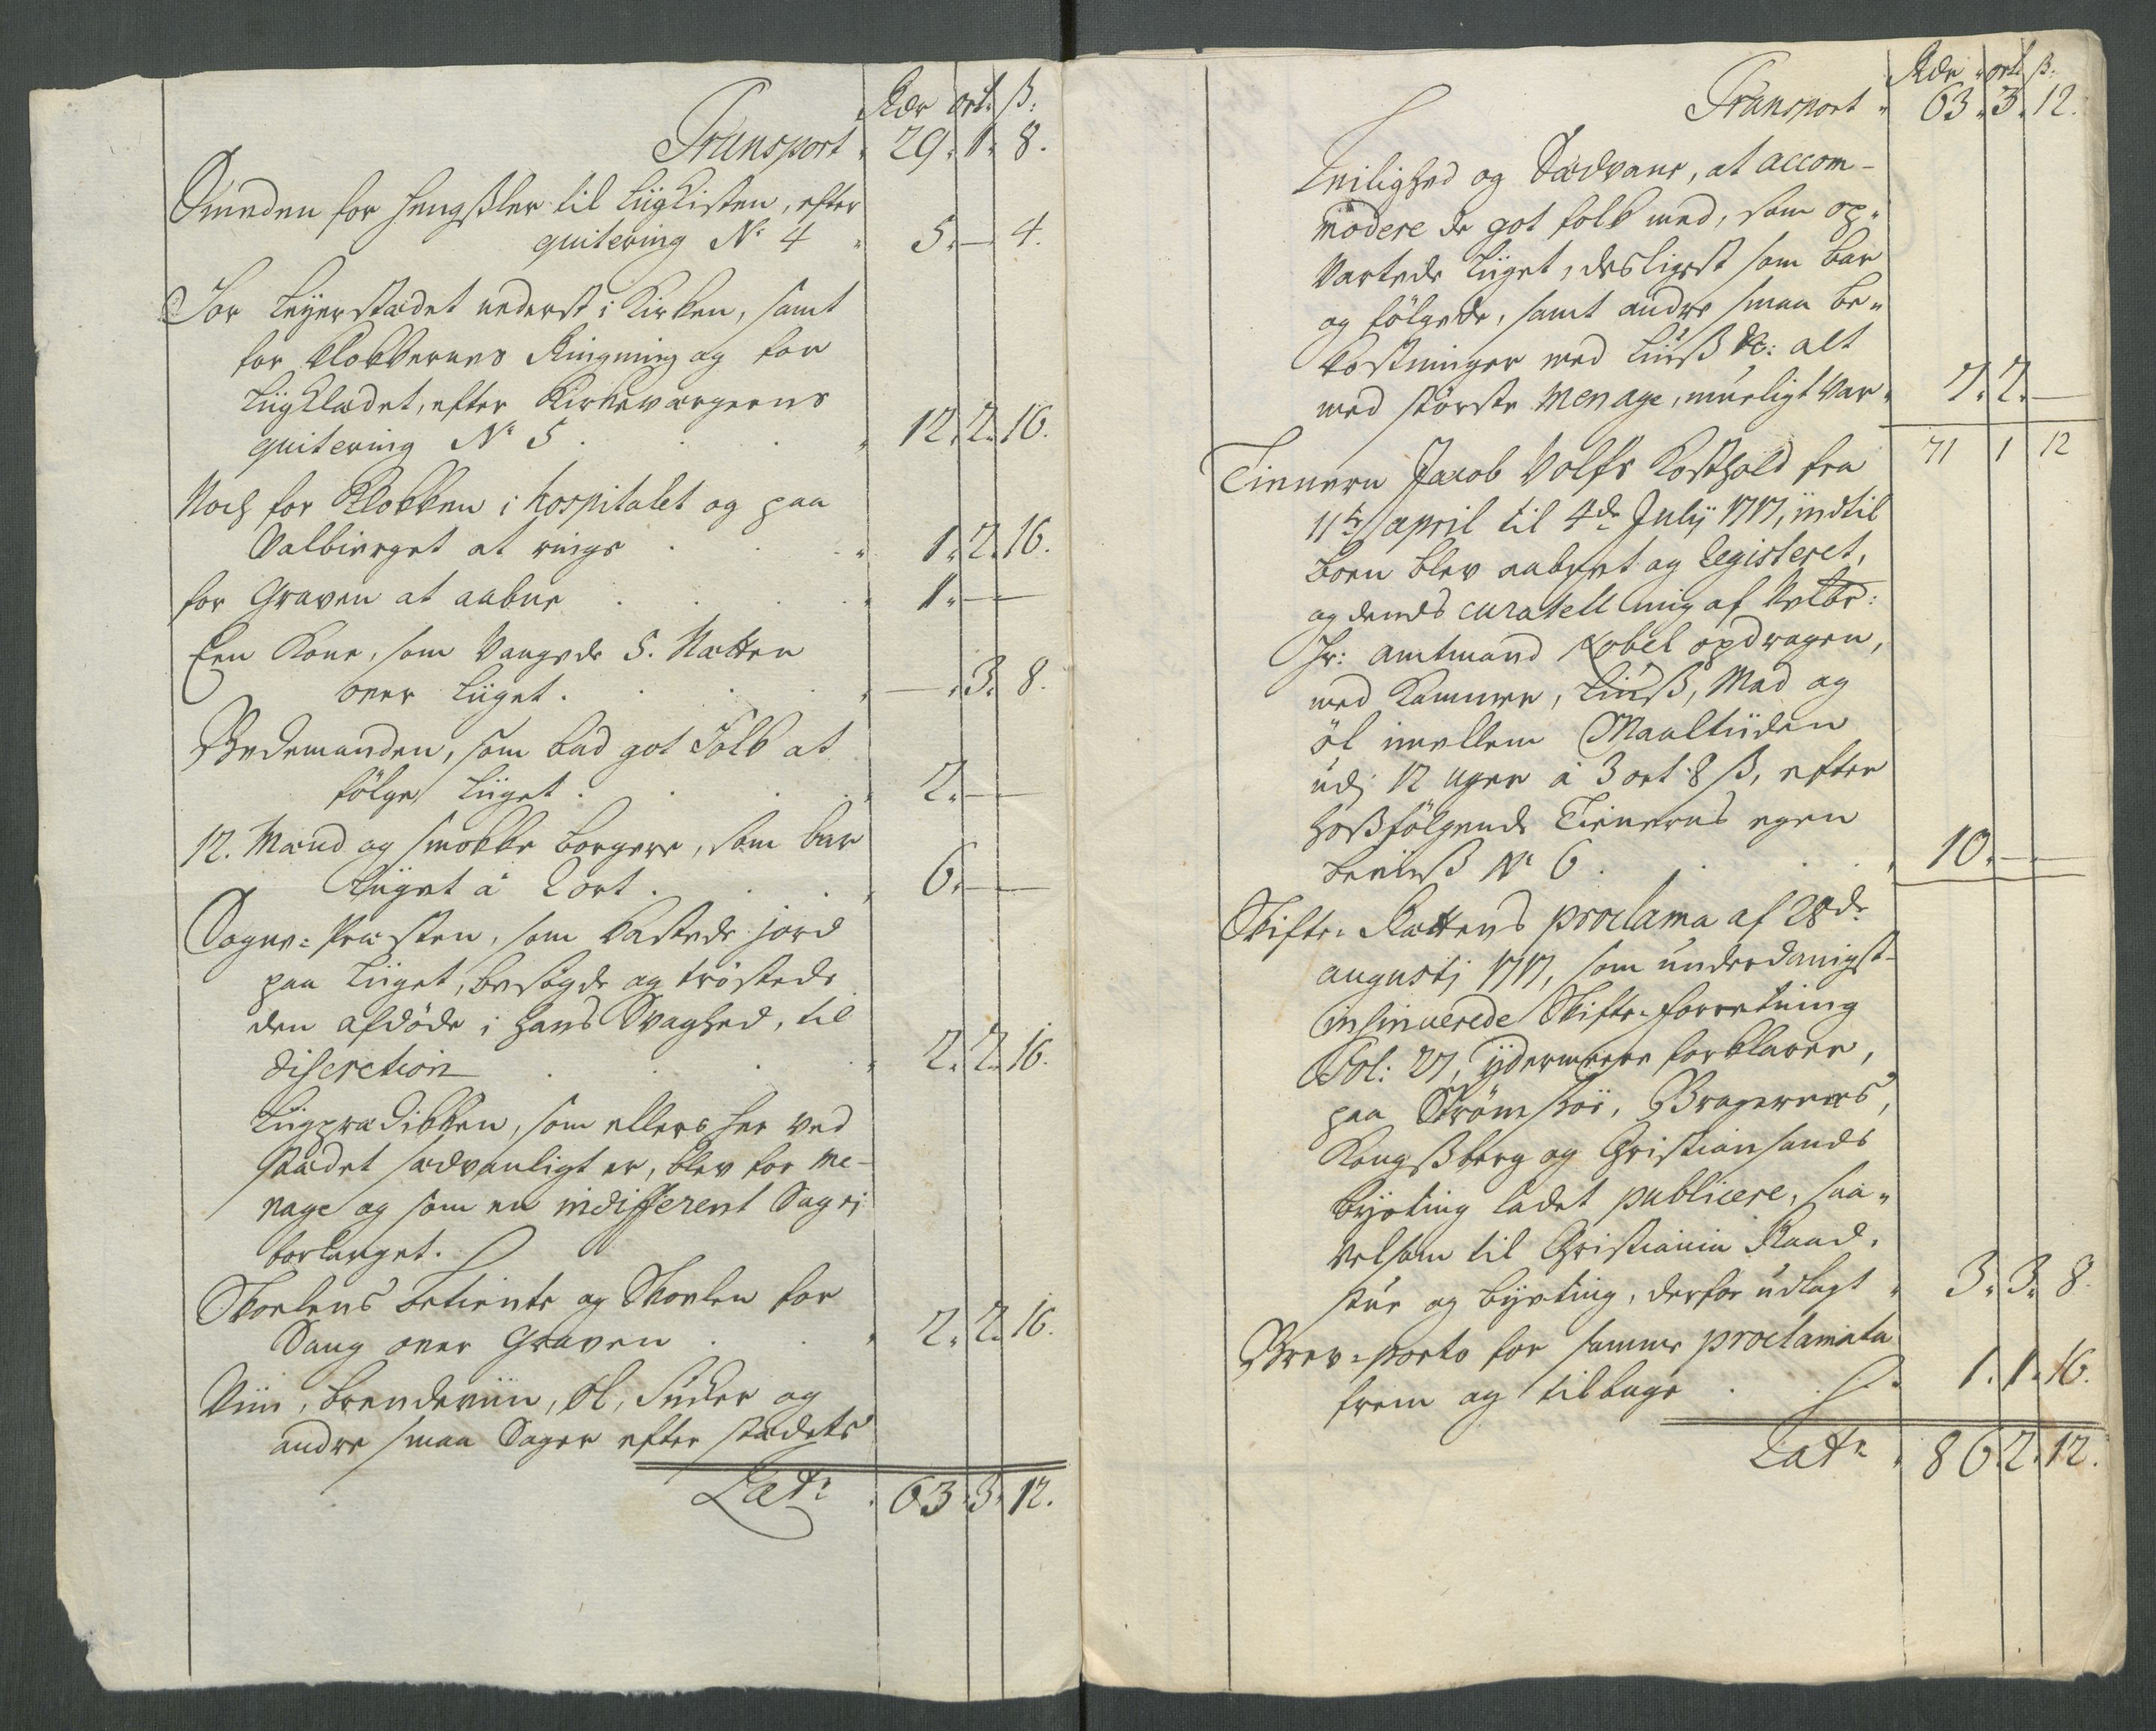 Rdr ort. ß:
Transport 29. 1. 8.
Smeden for Hengßler til Liigkisten, efter
quitering No. 4 5. — 4.
For Leyerstædet nederst i Kirken, samt
for Klokkernes Ringning og for
Liigklædet, efter Kirkeværgerens
quitering No. 5 . . . 12. 2. 16.
Noch for Klokken i Hospitalet og paa
Valbierget at ringe . . 1. 2. 16.
for Graven at aabne . . . 1. — —
Een Kone, som Vaagede 5. Nætter
over Liiget . . . — 3. 8.
Bedemanden, som bad got Folk at
fölge Liiget . . . 2. — —
12. Mænd og smokke borgere, som bar
Liiget à 2 ort . . . 6. — —
Sogne-Præsten, som kastede jord
paa Liiget, besögde og tröstede
den afdöde i hans Svaghed, til
discretion . . . 2. 2. 16.
Liigprædikken, som ellers her ved
stædet sædvanligt er, blev for me-
nage og som en indifferent Sag ej
forlanget.
Skoelens betiente og Skoelen for
Sang over Graven . . 2. 2. 16.
Viin, brendeviin, Öl, Sucker og
andre smaa Sager efter stædets
Latr. 63. 3. 12.
Rdr ort ß:
Transport 63. 3. 12.
Leilighed og Sædvane, at accom-
modere de got folk med, som op-
vartede Liiget, desligest som bar
og fölgede, samt andre smaa be-
kostninger med Liuß &c: alt
med störste Menage, mueligt var 7. 2. —
71 1 12
Tienern Jacob Volfs Kosthold fra
11te april til 4de Julij 1717, indtil
boen blev aabnet og Registeret,
og dends curatell mig af Velbr:
Hr: amtmand Kobel opdragen,
med Kammer, Liuß, Mad og
öl imellem Maaltiiden
udj 12 uger à 3 ort 8 ß, efter
hoßfölgende Tienerns egen
beviiß No. 6 . . . 10. — —
Skifte-Rættens proclama af 28de
augustj 1717, som underdanigst
insinuerede Skifte-forretning
Fol: 27, ydermeere forklarer,
paa Strömsöe, Bragernæs,
Kongßberg og Christiansands
byeting ladet publicere, saa-
velsom til Christiania Raad-
stue og byeting, derfor udlagt 3. 3. 8.
Brev-porto for samme proclamata
frem og tilbage . . 1. 1. 16.
Latr. 86. 2. 12.